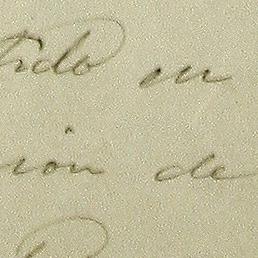 tido en
sión de